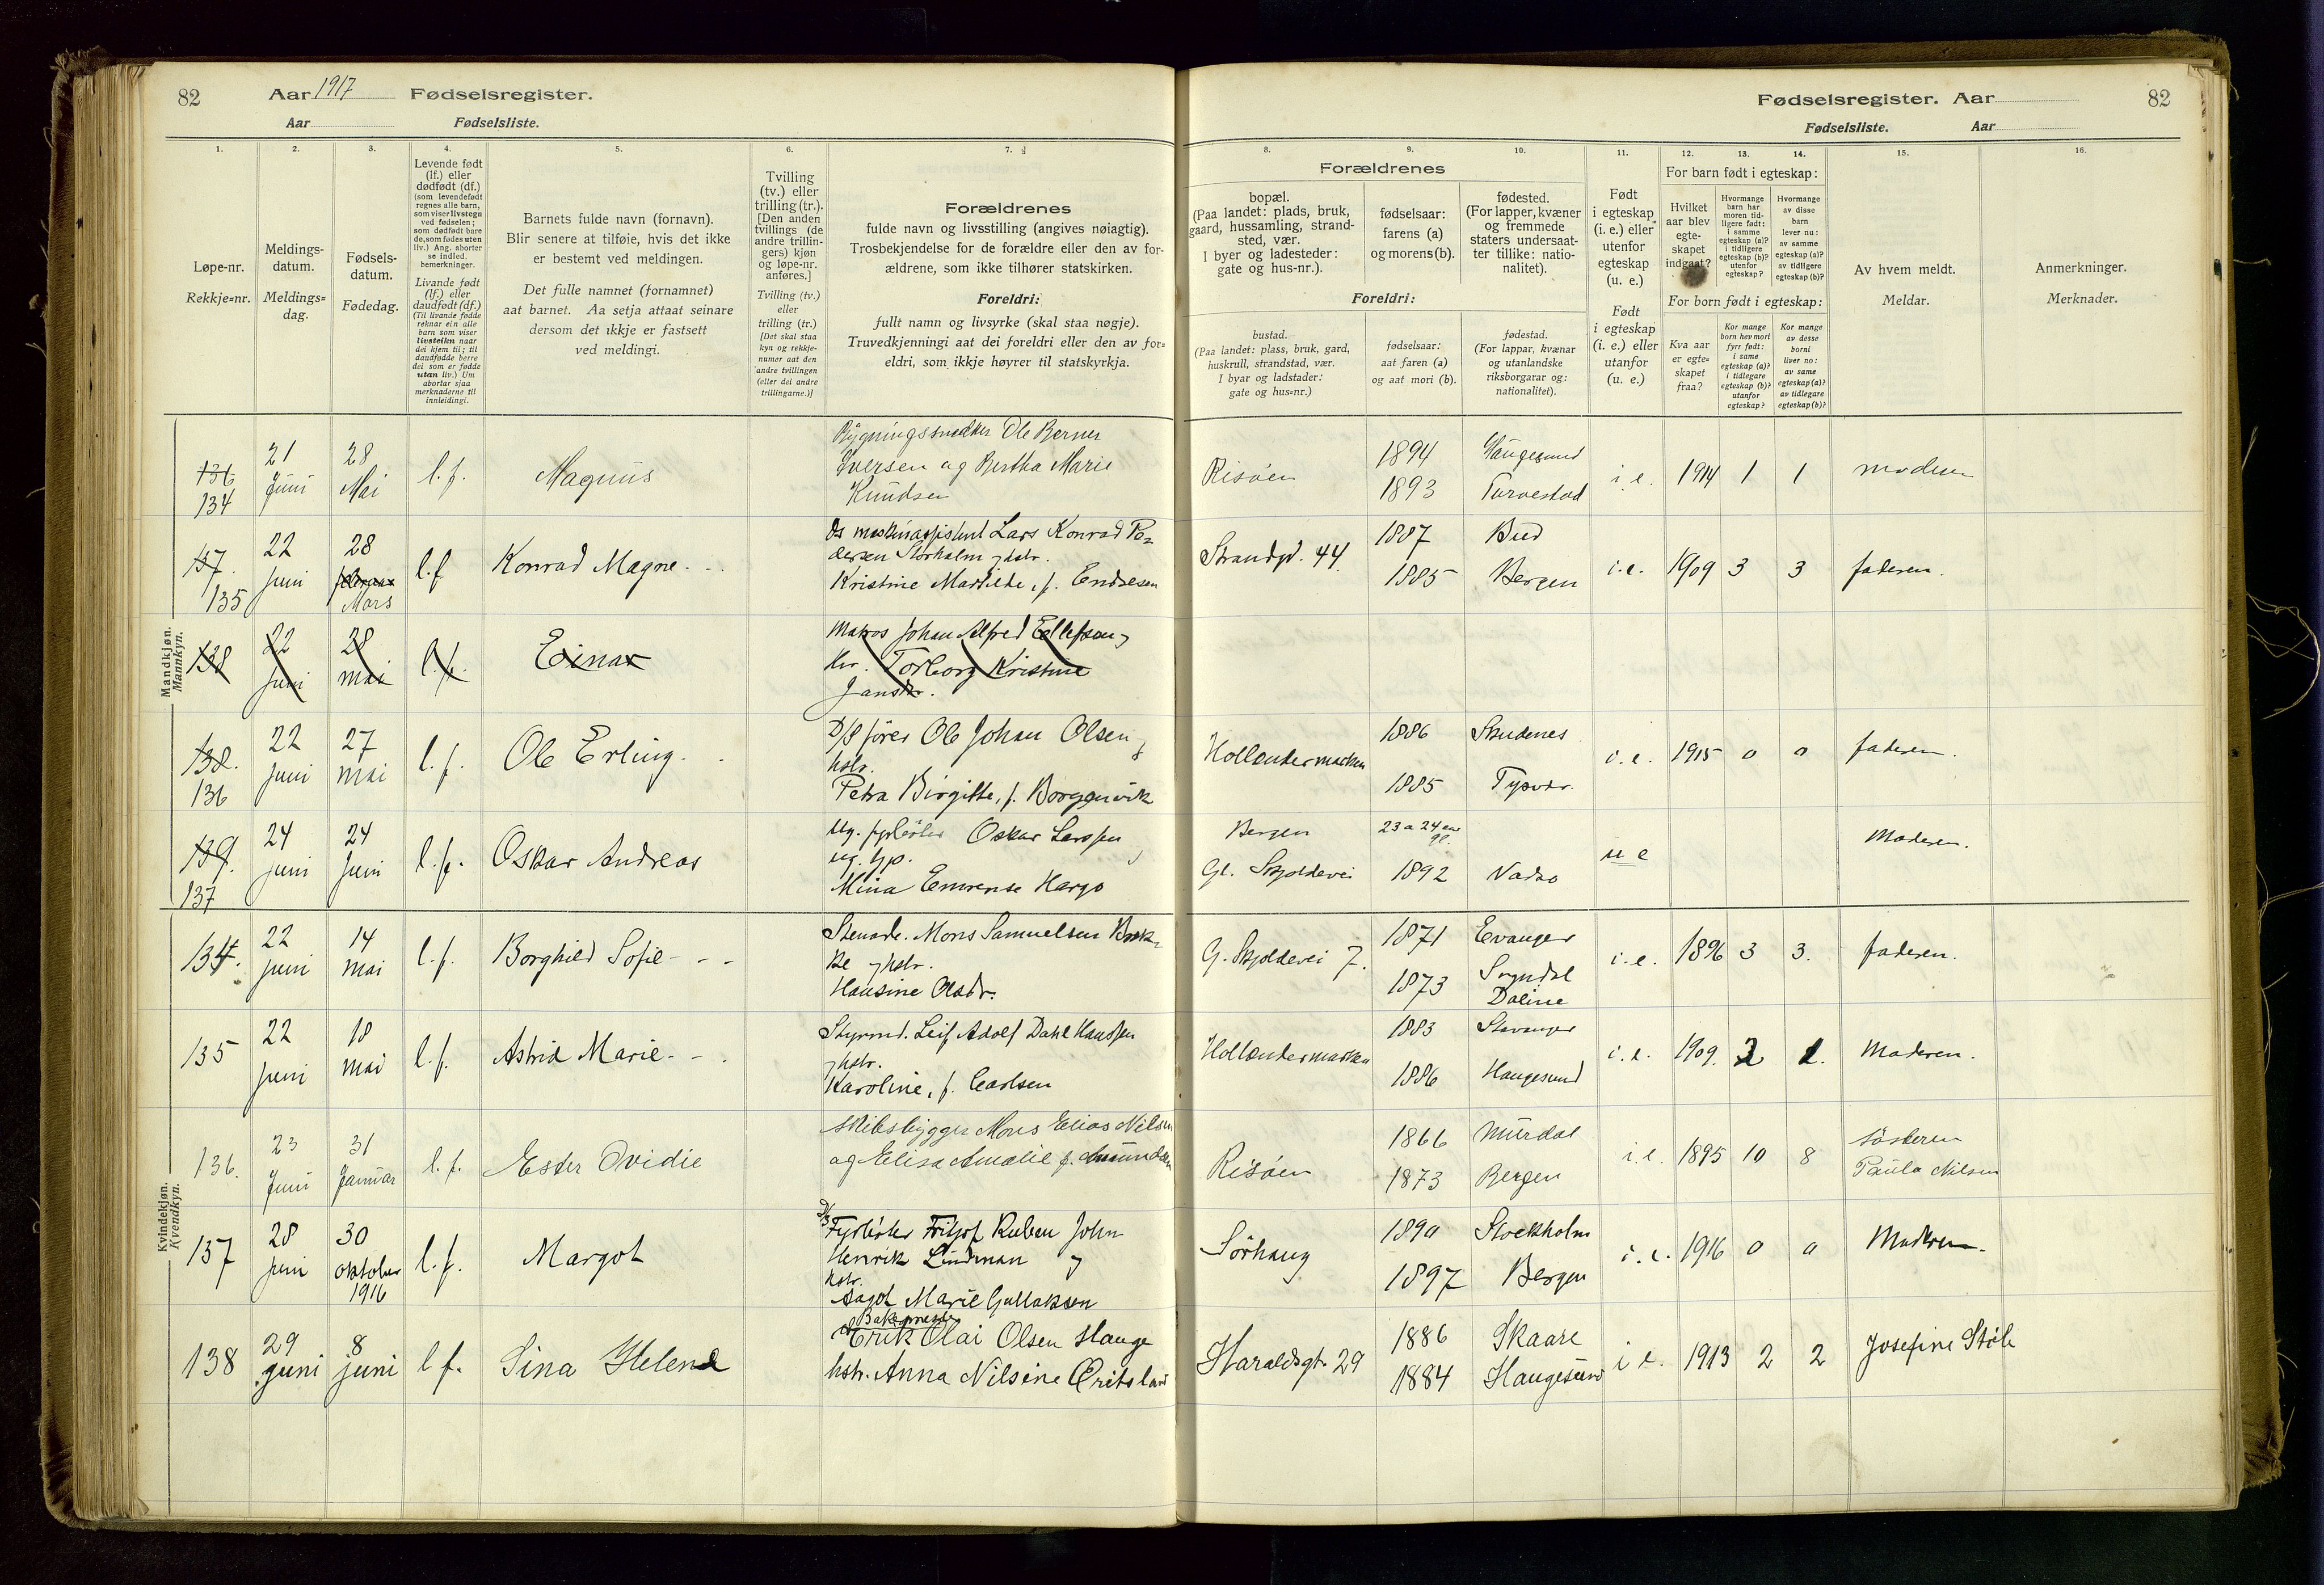 82 Aar 1917 Fødselsregister.
Aar Fødselsliste.
1. 2. 3. 4. 5. 6. 7.
Løpe-nr.
Rekkje=nr.
Meldings-
datum.
Meldings=
dag.
Fødsels-
datum.
Fødedag.
Levende født
(lf.) eller
dødfødt (df.)
(som levendefødt
regnes alle barn,
som viser livstegn
ved fødselen;
som dødfødt bare
de, som fødes uten
liv.) Ang. aborter
se indled.
bemerkninger.
Livande født
(lf.) eller
daudfødt (df.)
(Til livande fødde
reknar ein alle
barn som viser
livsteikn naar
dei kjem til; til
daudfødde berre
dei som er fødde
utan liv.) Um
abortar sjaa
merknaderne til
innleidingi.
Barnets fulde navn (fornavn).
Blir senere at tilføie, hvis det ikke
er bestemt ved meldingen.
Det fulle namnet (fornamnet)
aat barnet. Aa setja attaat seinare
dersom det ikkje er fastsett
ved meldingi.
Tvilling
(tv.) eller
trilling (tr.).
[Den anden
tvillings (de
andre trillin-
gers) kjøn
og løpe-nr.
anføres.]
Tvilling (tv.)
eller
trilling (tr.)
[Det skal staa
kyn og rekkje-
numer aat den
andre tvillingen
(eller dei andre
trillingarne.)]
Forældrenes
fulde navn og livsstilling (angives nøiagtig).
Trosbekjendelse for de forældre eller den av for-
ældrene, som ikke tilhører statskirken.
Foreldri:
fullt namn og livsyrke (skal staa nøgje).
Truvedkjenningi aat dei foreldri eller den av for=
eldri, som ikkje høyrer til statskyrkja.
Fødselsregister. Aar 82
Fødselsliste. Aar
8. 9. 10. 11. 12. 13. 14. 15. 16.
Forældrenes
bopæl.
(Paa landet: plads, bruk,
gaard, hussamling, strand-
sted, vær.
I byer og ladesteder:
gate og hus-nr.).
fødselsaar:
farens (a)
og morens (b).
fødested.
(For lapper, kvæner
og fremmede
staters undersaat-
ter tillike: natio-
nalitet).
Foreldri:
bustad.
(Paa landet: plass, bruk, gard,
huskrull, strandstad, vær.
I byar og ladstader:
gate og hus=nr.)
fødselsaar:
aat faren (a)
og aat mori (b).
fødestad.
(For lappar, kvænar
og utanlandske
riksborgarar og:
nationalitet).
Født
i egteskap
(i. e.) eller
utenfor
egteskap
(u. e.)
Født
i egteskap
(i. e.) eller
utanfor
(u. e.)
For barn født i egteskap:
Hvilket
aar blev
egte-
skapet
indgaat?
Hvormange
barn har
moren tid-
ligere født:
i samme
egteskap (a)?
i tidligere
egteskap (b)?
utenfor
egteskap?
Hvormange
av disse
barn
lever nu:
av samme
egteskap (a)?
av tidligere
egteskap (b)?
For born født i egteskap:
Kva aar
er egte=
skapet
fraa?
Kor mange
born hev mori
fyrr født:
i same
egteskap (a)?
i tidlegare
egteskap (b)?
utanfor
egteskap?
Kor mange
av desse
borni
liver no:
av same
egteskap (a)?
av tidlegare
egteskap (b)?
Av hvem meldt.
Meldar.
Anmerkninger.
Merknader.
Mandkjøn.
Mannkyn.
136 134 21 Juni 28 Mai l. f. Magnus
Bygningssnedker Ole Berner
Iversen og Bertha Marie
Knudsen
Risøen 1894 Haugesund
1893 Torvestad
i. e. 1914 1 1 moderen
137. 135 22 juni 28 februar Mars l. f. Konrad Magne
Ds maskinassistent Lars Konrad Pe=
dersen Storholm og hstr.
Kristine Mathilde, f. Endresen
Strandgd. 44 1887 Bud
1885 Bergen
i. e. 1909 3 3 faderen.
138 22 juni 28 mai l. f. Einar
Matros Johan Alfred Ellefsen og
Torborg Kristine
138. 136 22 juni 27 mai l. f. Ole Erling
D/S fører Ole Johan Olsen og
hstr.
Petra Birgitte, f. Borggevik
Hollendermarken 1886 Skudenes
1885 Tysvær.
i. e. 1915 0 0 faderen.
139. 137 24 juni 24 juni l. f. Oskar Andreas
Ug. fyrbøter Oskar Larssen
ug. hp.
Mina Emrense Hargo
Bergen 23 a 24 aar gl.
Gl. Skjoldevei 1892 Vadsø
u e Moderen.
Kvindekjøn.
Kvendkyn.
134. 22 juni 14 mai l. f. Borghild Sofie
Stenarb. Mons Samuelsen Brek=
ke og hstr.
Hansine Olsdr.
G. Skjoldevei 7. 1871 Evanger
1873 Sogndal
Dalene
i. e. 1896 3 3. faderen.
135 22 juni 18 mai l. f. Astrid Marie
Styrmd. Leif Adolf Dahl Hanssen
og hstr.
Karoline, f. Carlsen
Hollendermarken 1883 Stavanger
1886 Haugesund
i. e. 1909. 2 2. Moderen.
136. 23 Juni 31 Januar l. f. Ester Ovidie
Skibsbygger Mons Elias Nilsen
og Elisa Amalie f. Amundsen
Risøen 1866 Murdal
1873 Bergen
i. e. 1895 10 8 Søsteren
Paula Nilsen
137 28 juni 30 oktober 1916 l. f. Margot
Fyrbøter Fritjof Ruben John
Henrik Lindman og
hstr.
Aagot Marie Gullaksen
Sørhaug 1890 Stockholm
1897 Bergen
i. e. 1916 0 0 Moderen.
138 29 juni 8 juni l f. Sina Helene
Bakermester
Erik Olai Olsen Hauge
hstr. Anna Nilsine
Haraldsgt. 29 1886 Skaare
1884 Haugesund
i e. 1913 2 2 Josefine Støle